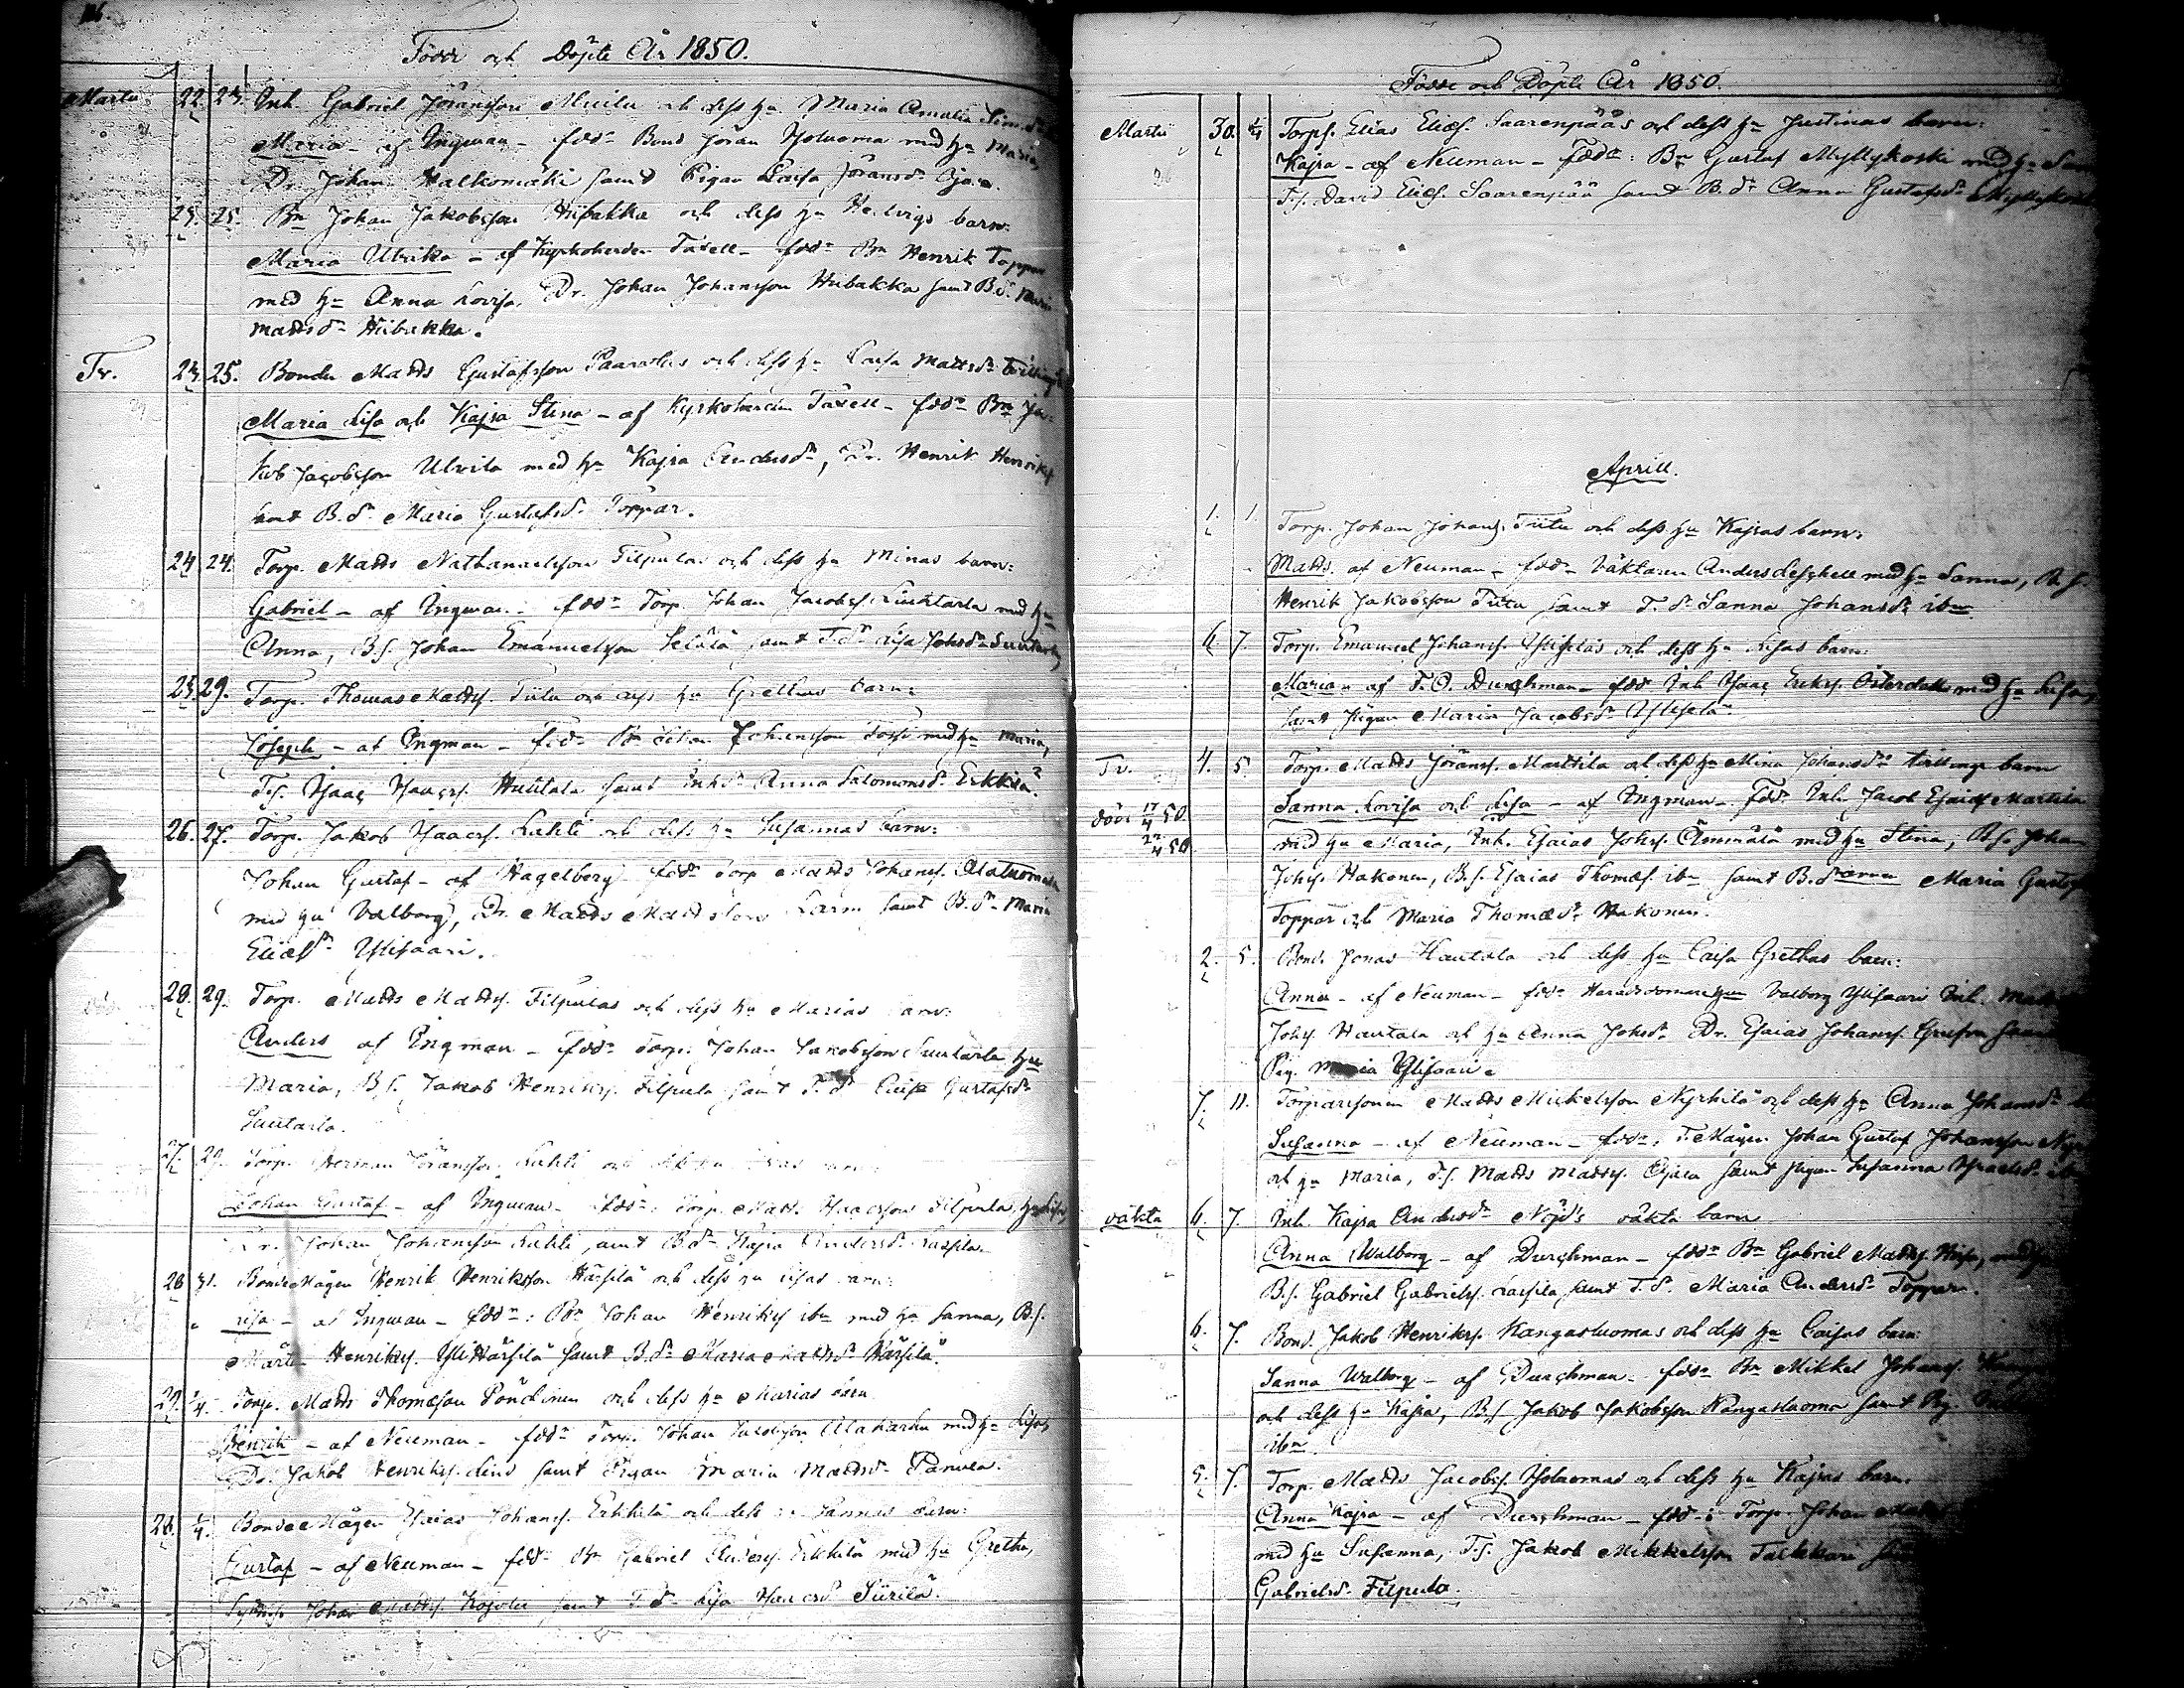 Födde och Döpte År 1850.
Martii 22. 24. Inh. Gabriel Göransson Muilu och dess hu Maria Amalia
Maria - af Ingman - fdd:r Bond Göran Yliluoma med hu Maria,
Dr. Johan Halkomäki samt Pigan Caisa Göransd:r Ojara.
25. 25. Bn Johan Jakobsson Hiibakka och dess hu Hedvigs barn:
Maria Ulrika - af Kyrkoherden Taxell - fdd:r Bn Henrik Toppar
med hu Anna Lovisa, Dr. Johan Johansson Hiibakka samt B.d:r Maria
Mattsd:r Hiibakka.
Tv. 23. 25. Bonden Matts Gustafsson Paavolas och dess hu Caisa Mattsd:r tvilling
Maria Lisa och Kajsa Stina - af Kyrkoherden Taxell - fdd:r Bn Ja-
kob Jacobsson Ulvila med hu Kajsa Andersd:r, Dr. Henrik Henriks.
samt B.d:r Maria Gustafsd:r Toppar.
24. 24. Torp. Matts Nathanaelsson Filpulas och dess hu Minas barn:
Gabriel - af Ingman - fdd:r Torp. Johan Jacobss. Luuktarla med hu
Anna, B.s. Johan Emanuelsson Seiälä samt T.d:r Lisa Johsd:r
25. 29. Torp. Thomas Mattss. Tiitu och dess hu Grethas barn:
Joseph - af Ingman - fdd:r Bn Johan Johansson med hu Maria,
T.s. Isaac Isaacss. Huhtala samt Inh.d:r Anna Salomonsd:r Erkkilä.
26. 27. Torp. Jakob Isaacss. Lahti och dess hu Susannas barn:
Johan Gustaf - af Hagelberg - fdd:r Torp Matts Johanss. Alaluoma
med hu Valborg, Dr. Matts Mattsson Larm samt B.d:r Maria
Eliæd:r Ylisaari.
28. 29. Torp. Matts Mattss. Filpulas och dess hu Marias barn:
Anders af Ingman - fdd:r Torp. Johan Jakobsson Luutarla hu
Maria, B.s. Jakob Henrikss. Filpula samt T.d:r Caisa Gustafsd:r
Luutarla.
27. 29. Torp. Herman Göransson Lahti och dess hu barn:
Johan Gustaf - af Ingman - fdd:r Torp. Matts Isaacsson Filpula, hu Lisa,
Dr. Johan Johansson Lahti samt B.d:r Kajsa Andersd:r Lassila.
28 31. BondeMågen Henrik Henriksson Härsilä och dess hu Lisas barn:
Lisa - af Ingman - fdd:r: Bn Johan Henrikss ibm med hu Sanna, B.s.
Märten Henrikss. YliHärsilä samt B.d:r Maria Mattsd:r Härsilä.
29. 1/4. Torp. Matts Thomasson Pöndinen och dess hu Marias barn
Henrik - af Neuman - fdd:r Torp. Johan Jacobsson Alakarhu med hu Lisa,
Dr. Jakob Henrikss. Lind samt Pigan Maria Mattsd:r Panula.
28. 1/4. BondeMågen Esaias Johanss. Erkkilä och dess hu Sannas barn:
Gustaf - af Neuman - fdd:r Bn Gabriel Anderss. Erkkilä med hu Gretha,
Johan Mattss. Kojola samt T.d:r Lisa Isaacsd:r Siirilä.
Födde och Döpte År 1850.
Martii 30. 1/4 Torps. Elias Eliæs. Saarenpääs och dess hu Justinas barn:
Kajsa - af Neuman - Fdd:r: Bn Gustaf Myllykoski med hu
T.s. David Eliæs. Saarenpää samt B.d:r Anna Gustafsd:r Myllykoski
Aprill.
1. 1. Torp. Johan Johanss. Tiitu och dess hu Kajsas barn:
Matts. af Neuman - fdd:r Väktaren Anders Leschell med hu Sanna, B.s.
Henrik Jakobsson Tiitu samt T.d:r Sanna Johansd:r ibm
6. 7. Torp. Emanuel Johanss. Ylihelas och dess hu Lisas barn:
Maria - af T.O. Durchman - fdd Inh Isaac Erikss. Österdahl med hu Lisa,
samt Pigan Maria Jacobsd:r Ylihelä.
Tv. 4. 5. Torp. Matts Göranss. Marttila och dess hu Mina Johansd:rs tvillinge barn
död: 17/4 50. Sanna Lovisa och Lisa - af Ingman - fdd:r Inh Jacob Esaiæss Marttila
22/4 50 med hu Maria, Inh. Esaias Johss. Ämmälä med hu Stina, B.s. Johan
Johss. Hakonen, B.s. Esaias Thomæs. ibm samt B.d:rarna Maria Gustafsd
Toppar och Maria Thomæd:r Hakonen.
2. 5. Bond. Jonas Hautala och dess hu Caisa Grethas barn:
Anna - af Neuman - fdd:r Häradsdomarehun Valborg Ylisaari Inh. Matts
Johss. Hautala och hu Anna Johsd:r Dr. Esaias Johanss. samt
Pig. Maria Ylisaari.
7. 11. Torparsonen Matts Mickelsson Nyrhilä och dess hu Anna Johansd:r
Susanna - af Neuman - fdd:r: T.Mågen Johan Gustaf Johansson
och hu Maria, T.s. Matts Mattss. Ojala samt Pigan Susanna Israelsd:r ibm
oäkta 6. 7. Inh. Kajsa Andersd:r Nöjd's oäkta barn
Anna Walborg - af Durchman - fdd:r Bn Gabriel Mattss.
B.s. Gabriel Gabrielss. Lassila samt T.d. Maria Andersd:r Toppari.
6. 7. Bond. Jakob Henrikss. Kangasluomas och dess hu Caisas barn:
Sanna Walborg - af Durchman - fdd:r Bn Mikkel Johanss.
och dess hu Kajsa, B.s. Jakob Jakobsson Kangasluoma samt Pig.
ibm.
5. 7. Torp. Matts Jacobss. Yliluomas och dess hu Kajsas barn.
Anna Kajsa - af Durchman - fdd:r: Torp. Johan
med hu Susanna, T.s. Jakob Mikkelsson Tarkkari
Gabrielsd:r Filpula.